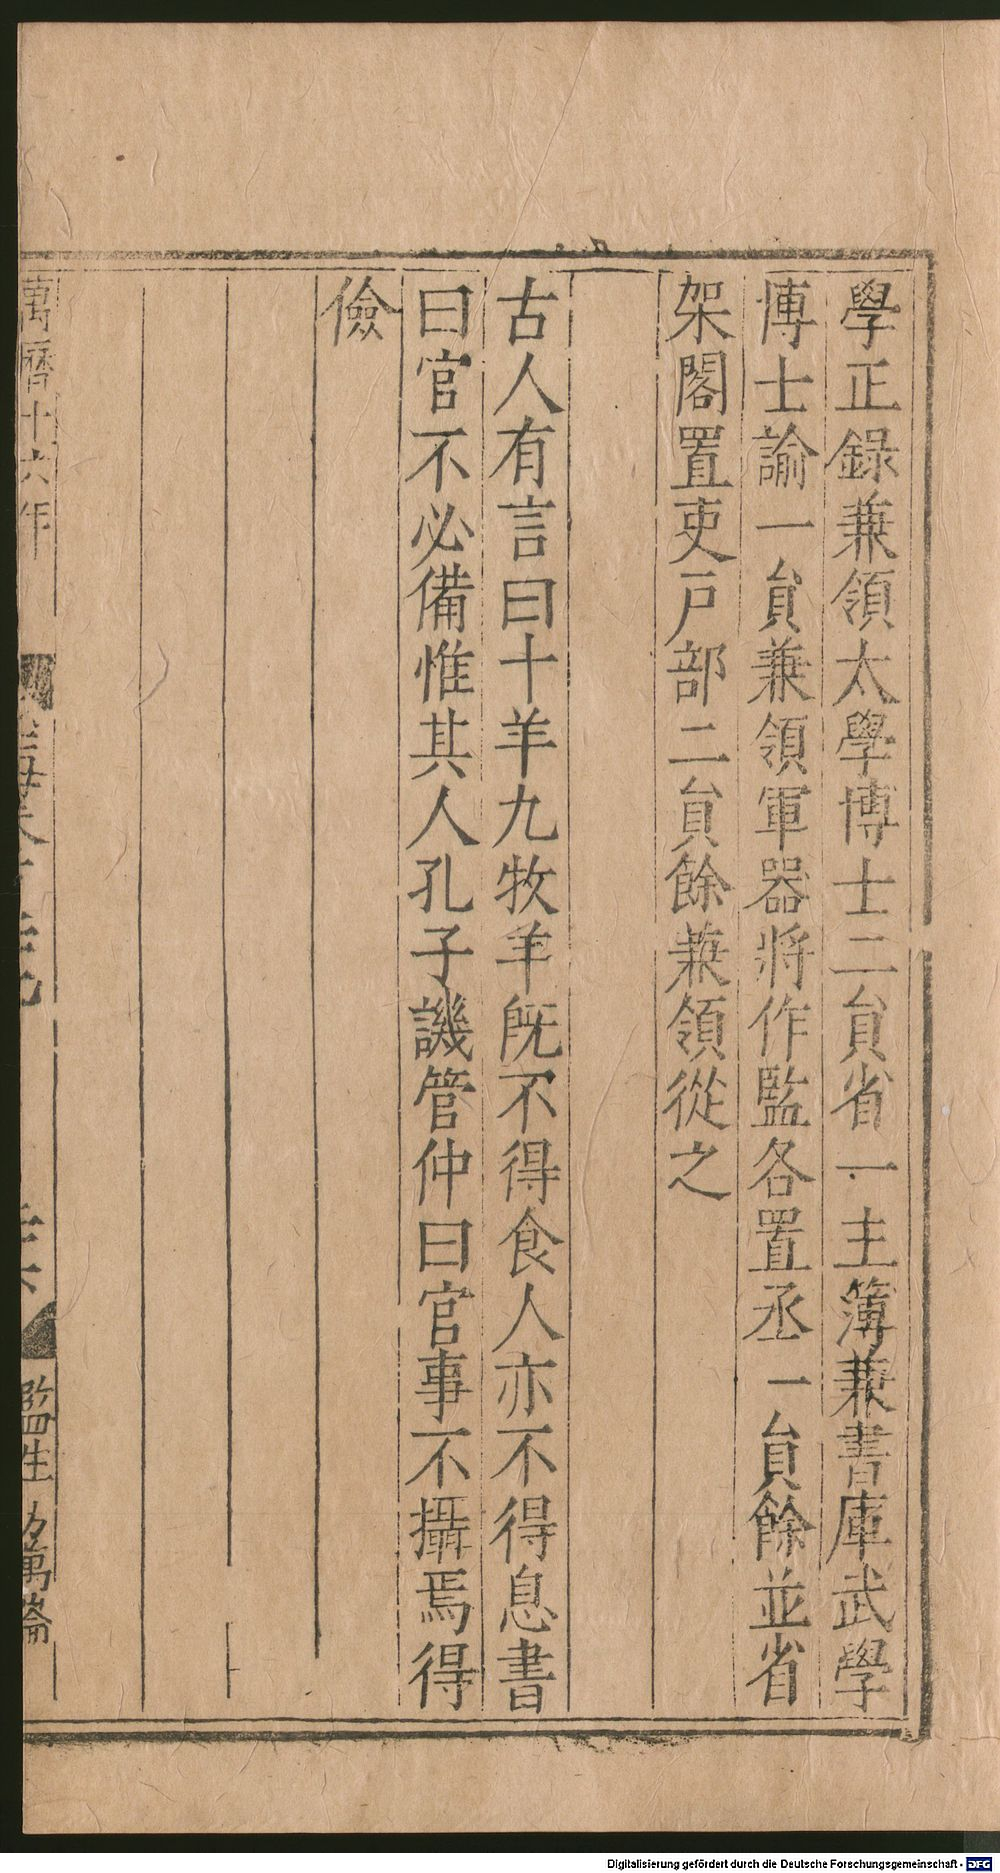 學正錄兼領太學博士二貟省一主簿兼書庫武學
博士諭一貟兼領軍器將作監各置丞一貟餘並省
架閣置吏戶部二貟餘兼領從之
古人有言曰十羊九牧羊旣不得食人亦不得息書
曰官不必備惟其人孔子譏管仲曰官事不攝焉得
儉
萬曆十六年
監生
Digitalisierung gefördert durch die Deutsche Forschungsgemeinschaft - DFG